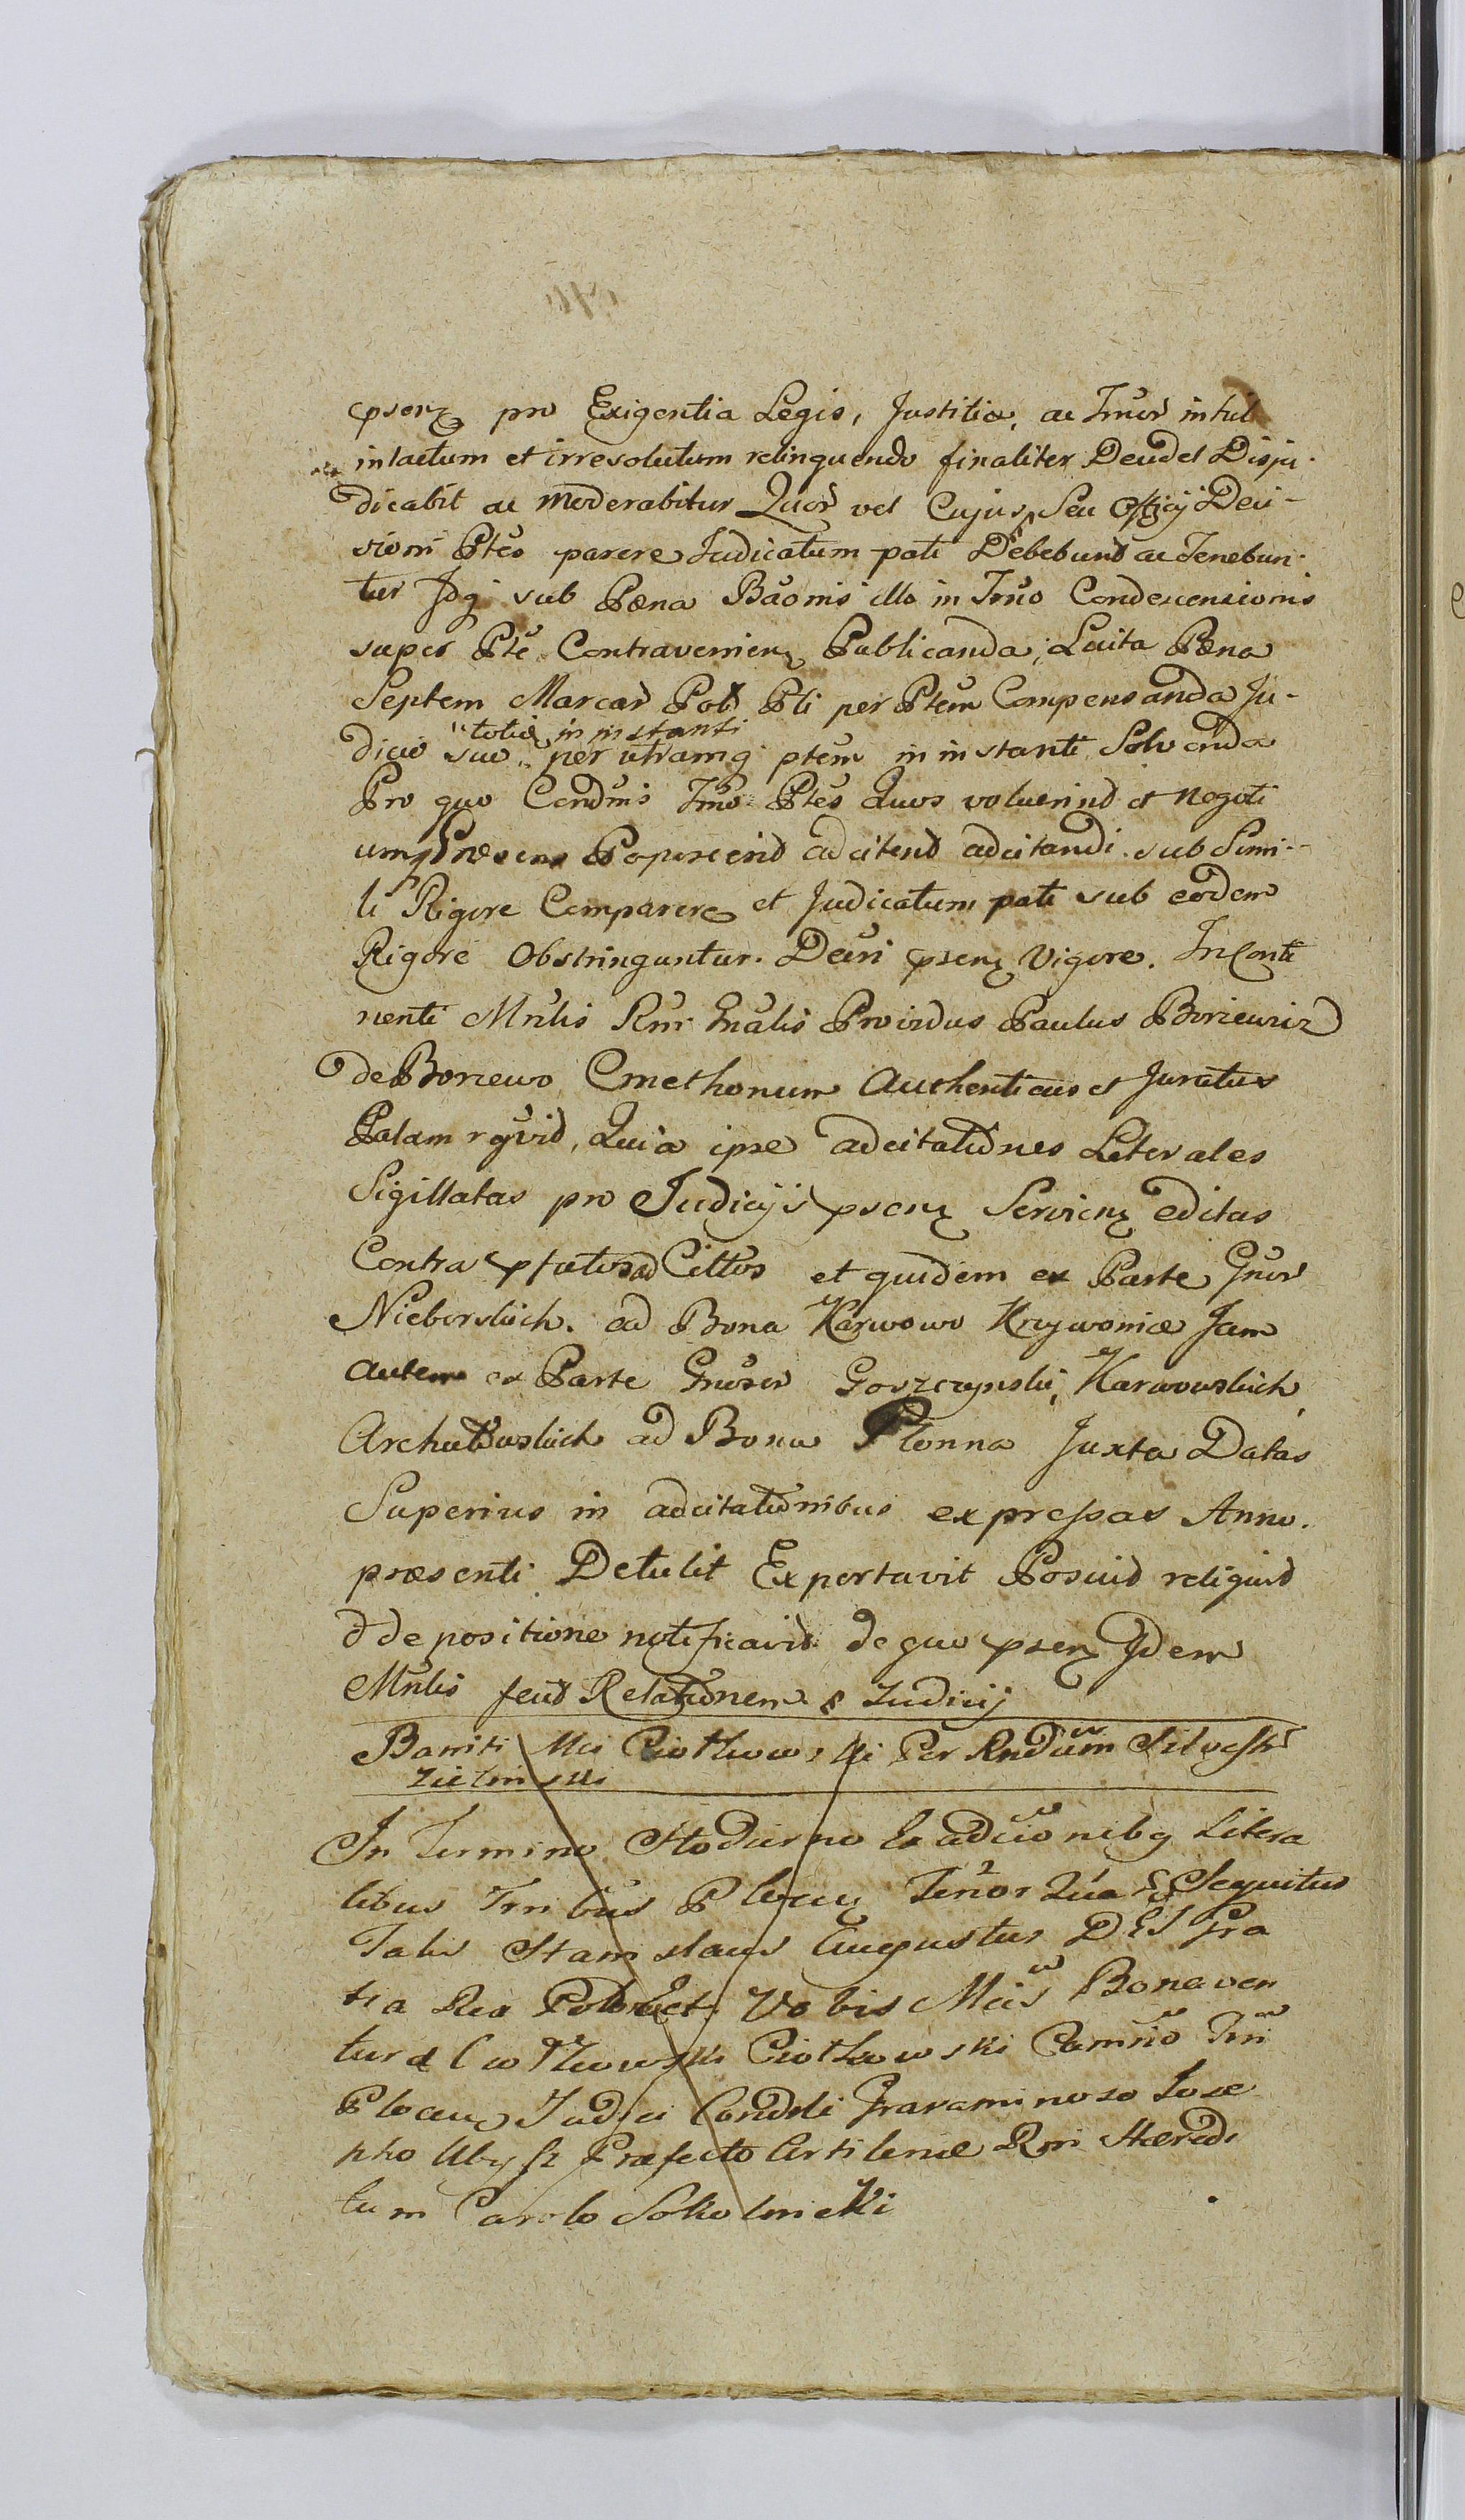 psenz pro Exigentia Legis, Justitiæ, ac Jmũr intuil
intactum et irresolutum relinquendo finaliter Decidet Disju-
dicabit ac Moderabitur Quor̃ vel Cujus Seu Offcij Deci-
sioni Ptẽs parere Judicatum pati Debebunt ac Tenebun-
tur Idq sub Pæna Bãonis illo in Trũo Condescensionis
super Ptẽ Contravenienz Publicanda, Luita Pæna
Septem Marcar̃ Pol Pli per Ptẽm Compensanda Ju-
toties in instanti
dicio suo per utramq ptẽm in instanti Solvenda
Pro quo Condñis Trũo Ptẽs Quos voluerint et negoti
umq Præsens Poposcerit adcitent adcitandi sub Simi-
li Rigore Comparere et Judicatum pati sub eodem
Rigore Obstringuntur. Decñi psenz Vigore. In Conti
nenti Mñlis Rñi Gñalis Providus Paulus Boriewicz
de Boriewo Cmethonum Authenticus et Juratus
Palam rgvit, Quia ipse adcitationes Literales
Sigillatas pro Judicijs psenz Servienz editas
Contra pfatos ad Cittos et quidem ex Parte Gñor
Nieborskich. ad Bona Karwowo Krzywonice Jam
autem ex Parte Gñoser Goszczynskie, Karwowskich
Archutowskich ad Bona Płonna Juxta Datas
Superius in adcitationibus expressas Anno.
præsenti Detulit Exportavit Posuit reliquit
d de positione notificavit de quo psenz Idem
Mñlis fecit Relationem s Iudicij
Baniti Mci Ciotkowski Per Rndũm Silvestr
Zielinski
In Termino Hodierno Ex adciõnibq Litera
libus Trñibus Plocenz Tenor Quã E Sequitur
Talis Stanislaus Augustus DEI Gra
tia Rex Polon Et. Vobis Mcis Bonaven
tura Ciotkowski Ciotkowski Camrio Trñi
Plocenz Judici Conddi Gravaminoso Jose
pho Præfecto Artileriæ Rñi Heredi
tum Carolo Sokolnicki